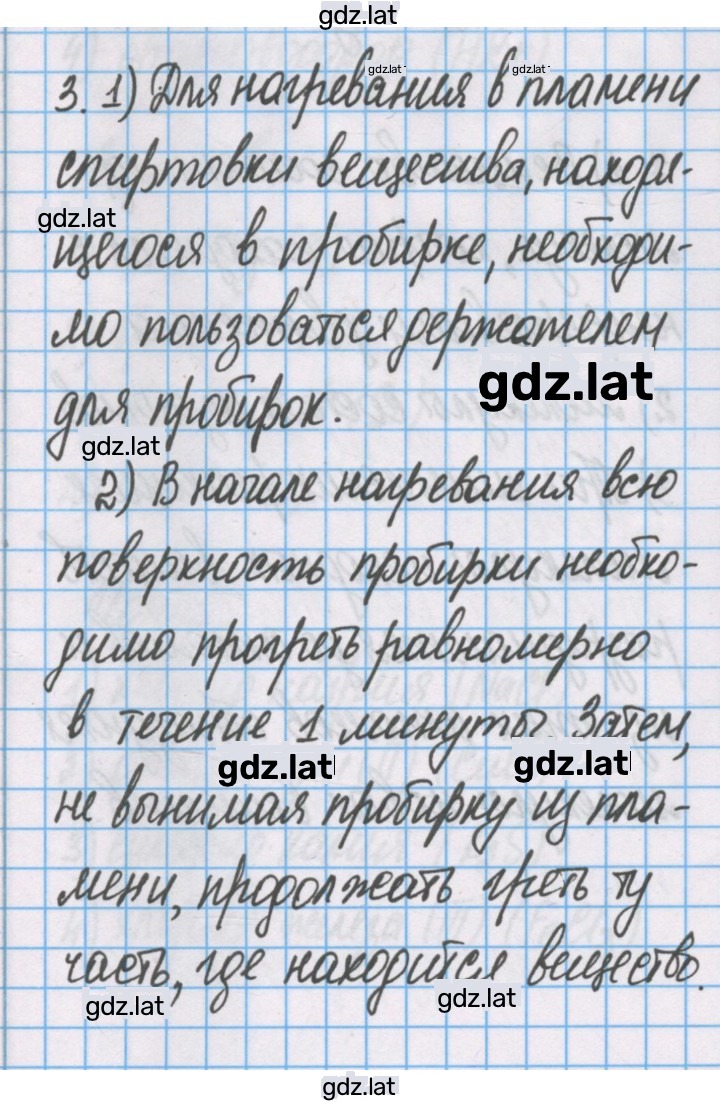 gdz.lat
3. 1) Для нагревания в пламени
gdz.lat gdz.lat
спиртовки вещества, находя-
gdz.lat
щегося в пробирке, необходи-
мо пользоваться держателем
gdz.lat
для пробирок.
gdz.lat
2) В начале нагревания всю
поверхность пробирки необхо-
димо прогреть равномерно
в течение 1 минуты. Затем,
gdz.lat gdz.lat
не вынимая пробирку из пла-
мени, продолжать греть ту
часть, где находится вещество.
gdz.lat gdz.lat
gdz.lat